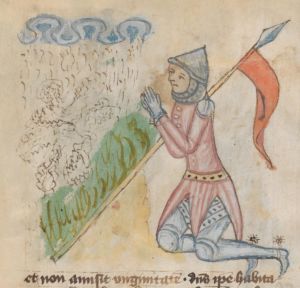 et non amisit virginitatē · dn̄s ipe habita